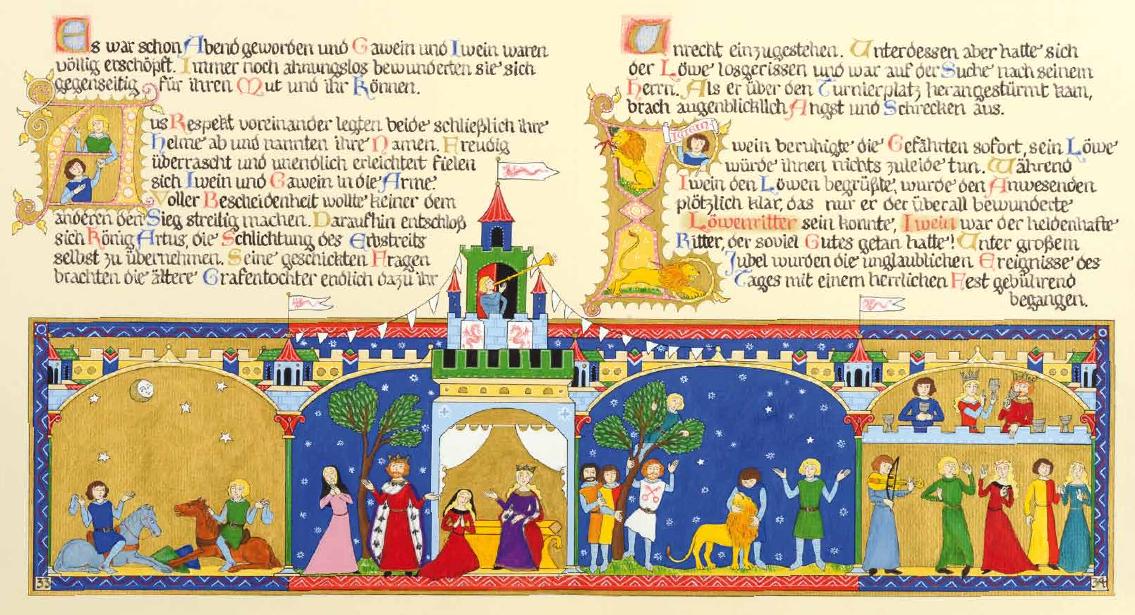 Es war schon Abend geworden und Gawein und Iwein waren
völlig erschöpft. Immer noch ahnungslos bewunderten sie sich
gegenseitig für ihren Mut und ihr Können.
Aus Respekt voreinander legten beide schließlich ihre
Helme ab und nannten ihre Namen. Freudig
überrascht und unendlich erleichtert fielen
sich Iwein und Gawein in die Arme.
Voller Bescheidenheit wollte keiner dem
anderen den Sieg streitig machen. Daraufhin entschloß
sich König Artus, die Schlichtung des Erbstreits
selbst zu übernehmen. Seine geschickten Fragen
brachten die ältere Grafentochter endlich dazu ihr
Unrecht einzugestehen. Unterdessen aber hatte sich
der Löwe losgerissen und war auf der Suche nach seinem
Herrn. Als er über den Turnierplatz herangestürmt kam,
brach augenblicklich Angst und Schrecken aus.
Iwein
Iwein beruhigte die Gefährten sofort, sein Löwe
würde ihnen nichts zuleide tun. Während
Iwein den Löwen begrüßte, wurde den Anwesenden
plötzlich klar, das nur er der überall bewunderte
Löwenritter sein konnte, Iwein war der heldenhafte
Ritter, der soviel Gutes getan hatte! Unter großem
Jubel wurden die unglaublichen Ereignisse des
Tages mit einem herrlichen Fest gebührend
begangen.
33
34